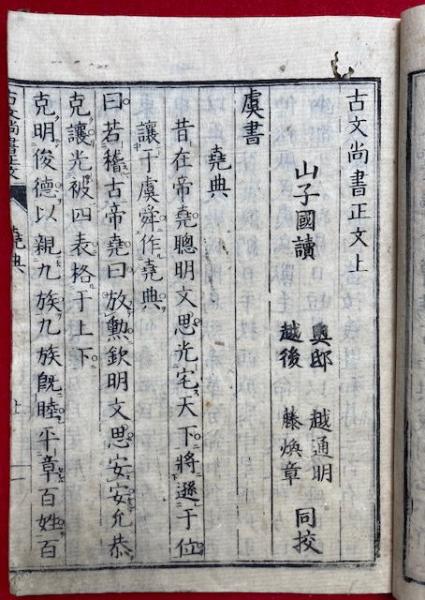 古文尚書正文上
山子國讀
奧邸 越通明
越後 藤煥章
同挍
虞書
堯典
昔在帝堯聰明文思光宅天下將遜于位
讓于虞舜作堯典
曰若稽古帝堯曰放勲欽明文思安安允恭
克讓光被四表格于上下
克明俊德以親九族九族旣睦平章百姓百
古文尚書正文
堯典
上
一